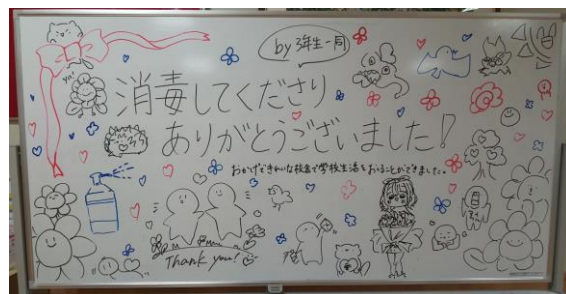 by 3年生一同
消毒してくださり
ありがとうございました!
おかげできれいな校舎で学校生活をおくることができました。
Thank you!